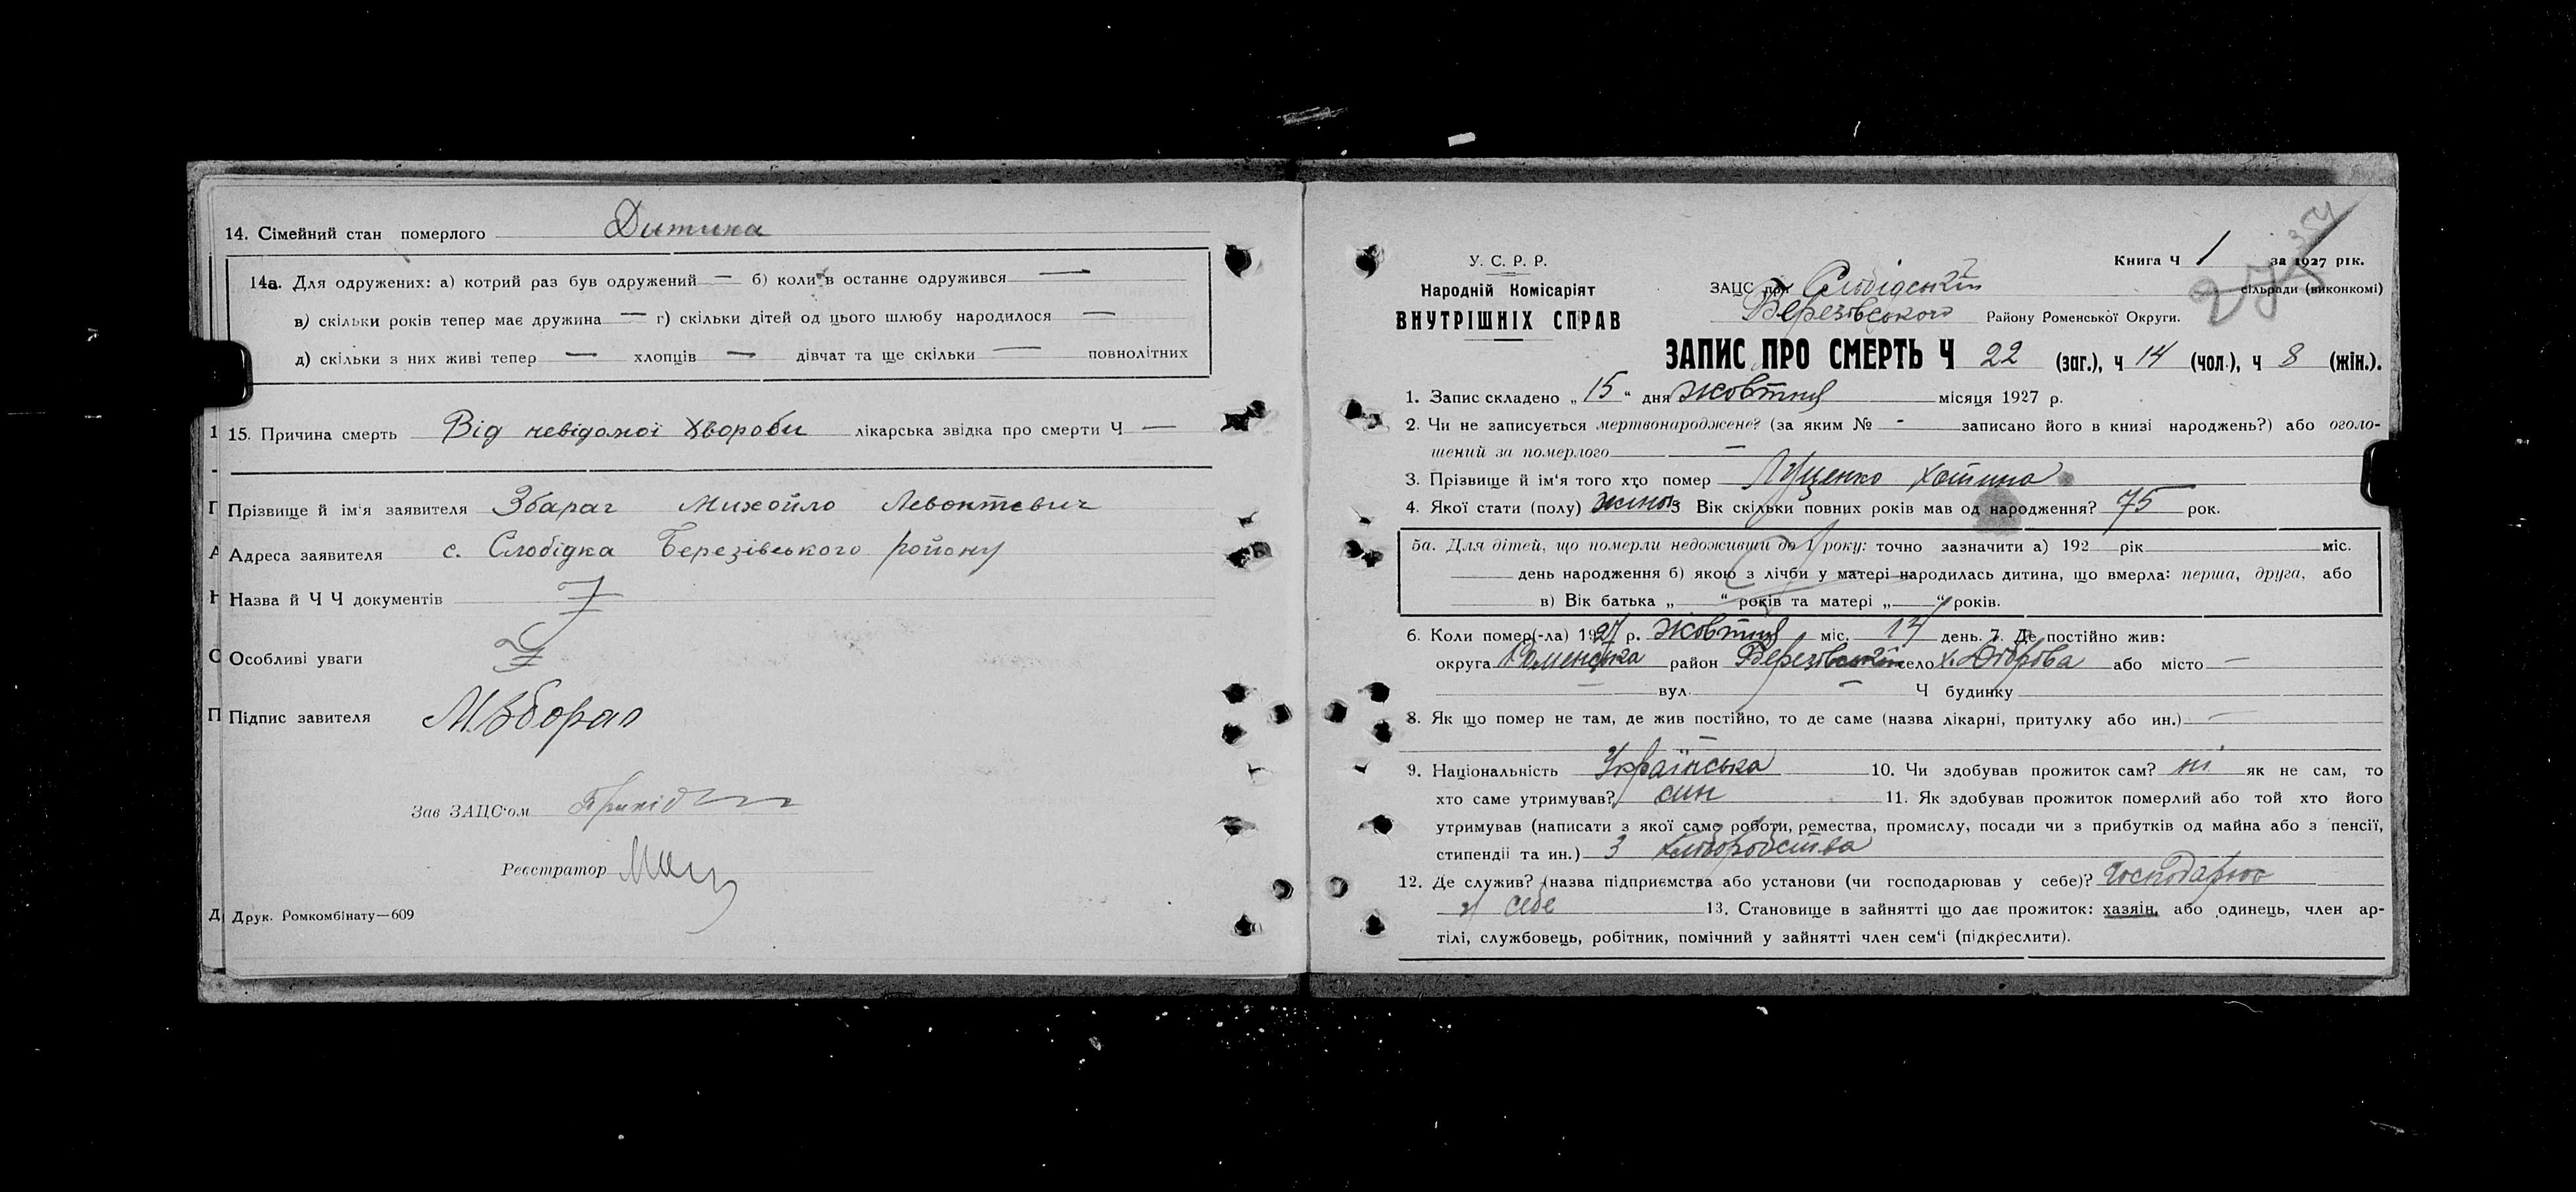 14. Сімейний стан померлого Дитина
14а. Для одружених: а) котрий раз був одружений — б) коли в останнє одружився —
в) скільки років тепер має дружина — г) скільки дітей од цього шлюбу народилося —
д) скільки з них живі тепер — хлопців — дівчат та ще скільки — повнолітних
15. Причина смерть Від невідомої хвороби лікарська звідка про смерти Ч —
Прізвище й ім'я заявителя Збараг Михойло Левонтевич
Адреса заявителя с. Слобідка Березівського району
Назва й Ч Ч документів
Особливі уваги
Підпис завителя МЗбораг
Зав ЗАЦС'ом
Реєстратор
Друк. Ромкомбінату—609
У. С. Р. Р.
Народній Комісаріят
ВНУТРІШНІХ СПРАВ
Книга Ч 1 за 1927 рік.
ЗАЦС при Слобідській сільради (виконкомі)
Березівського Району Роменської Округи.
ЗАПИС ПРО СМЕРТЬ Ч 22 (заг.), ч 14 (чол.), ч 8 (жін.).
1. Запис складено „ 15 " дня жовтня місяця 1927 р.
2. Чи не записується мертвонароджене? (за яким № - записано його в книзі народжень?) або оголо-
шений за померлого —
3. Прізвище й ім'я того хто помер Луценко
4. Якої статі (полу) жіноч 5 Вік скільки повних років мав од народження? 75 рок.
5а. Для дітей, що померли недоживши до 1 року: точно зазначити а) 192 рік міс.
день народження б) якою з лічби у матері народилась дитина, що вмерла: перша, друга, або
в) Вік батька „ " років та матері „ " років.
6. Коли помер(-ла) 1927 р. Жовтня міс. 14 день. 7. Де постійно жив:
округа Роменська район Березівський село х. Діброва або місто —
— вул. — Ч будинку
8. Як що помер не там, де жив постійно, то де саме (назва лікарні, притулку або ин.) —
9. Національність Українська 10. Чи здобував прожиток сам? ні як не сам, то
хто саме утримував? син 11. Як здобував прожиток померлий або той хто його
утримував (написати з якої само роботи, ремества, промислу, посади чи з прибутків од майна або з пенсії,
стипендії та ин.) З хліборобства
12. Де служив? (назва підприємства або установи (чи господарював у себе)? Господарює
у себе 13. Становище в зайнятті що дає прожиток: хазяїн, або одинець, член ар-
тілі, службовець, робітник, помічний у зайнятті член сем'ї (підкреслити).